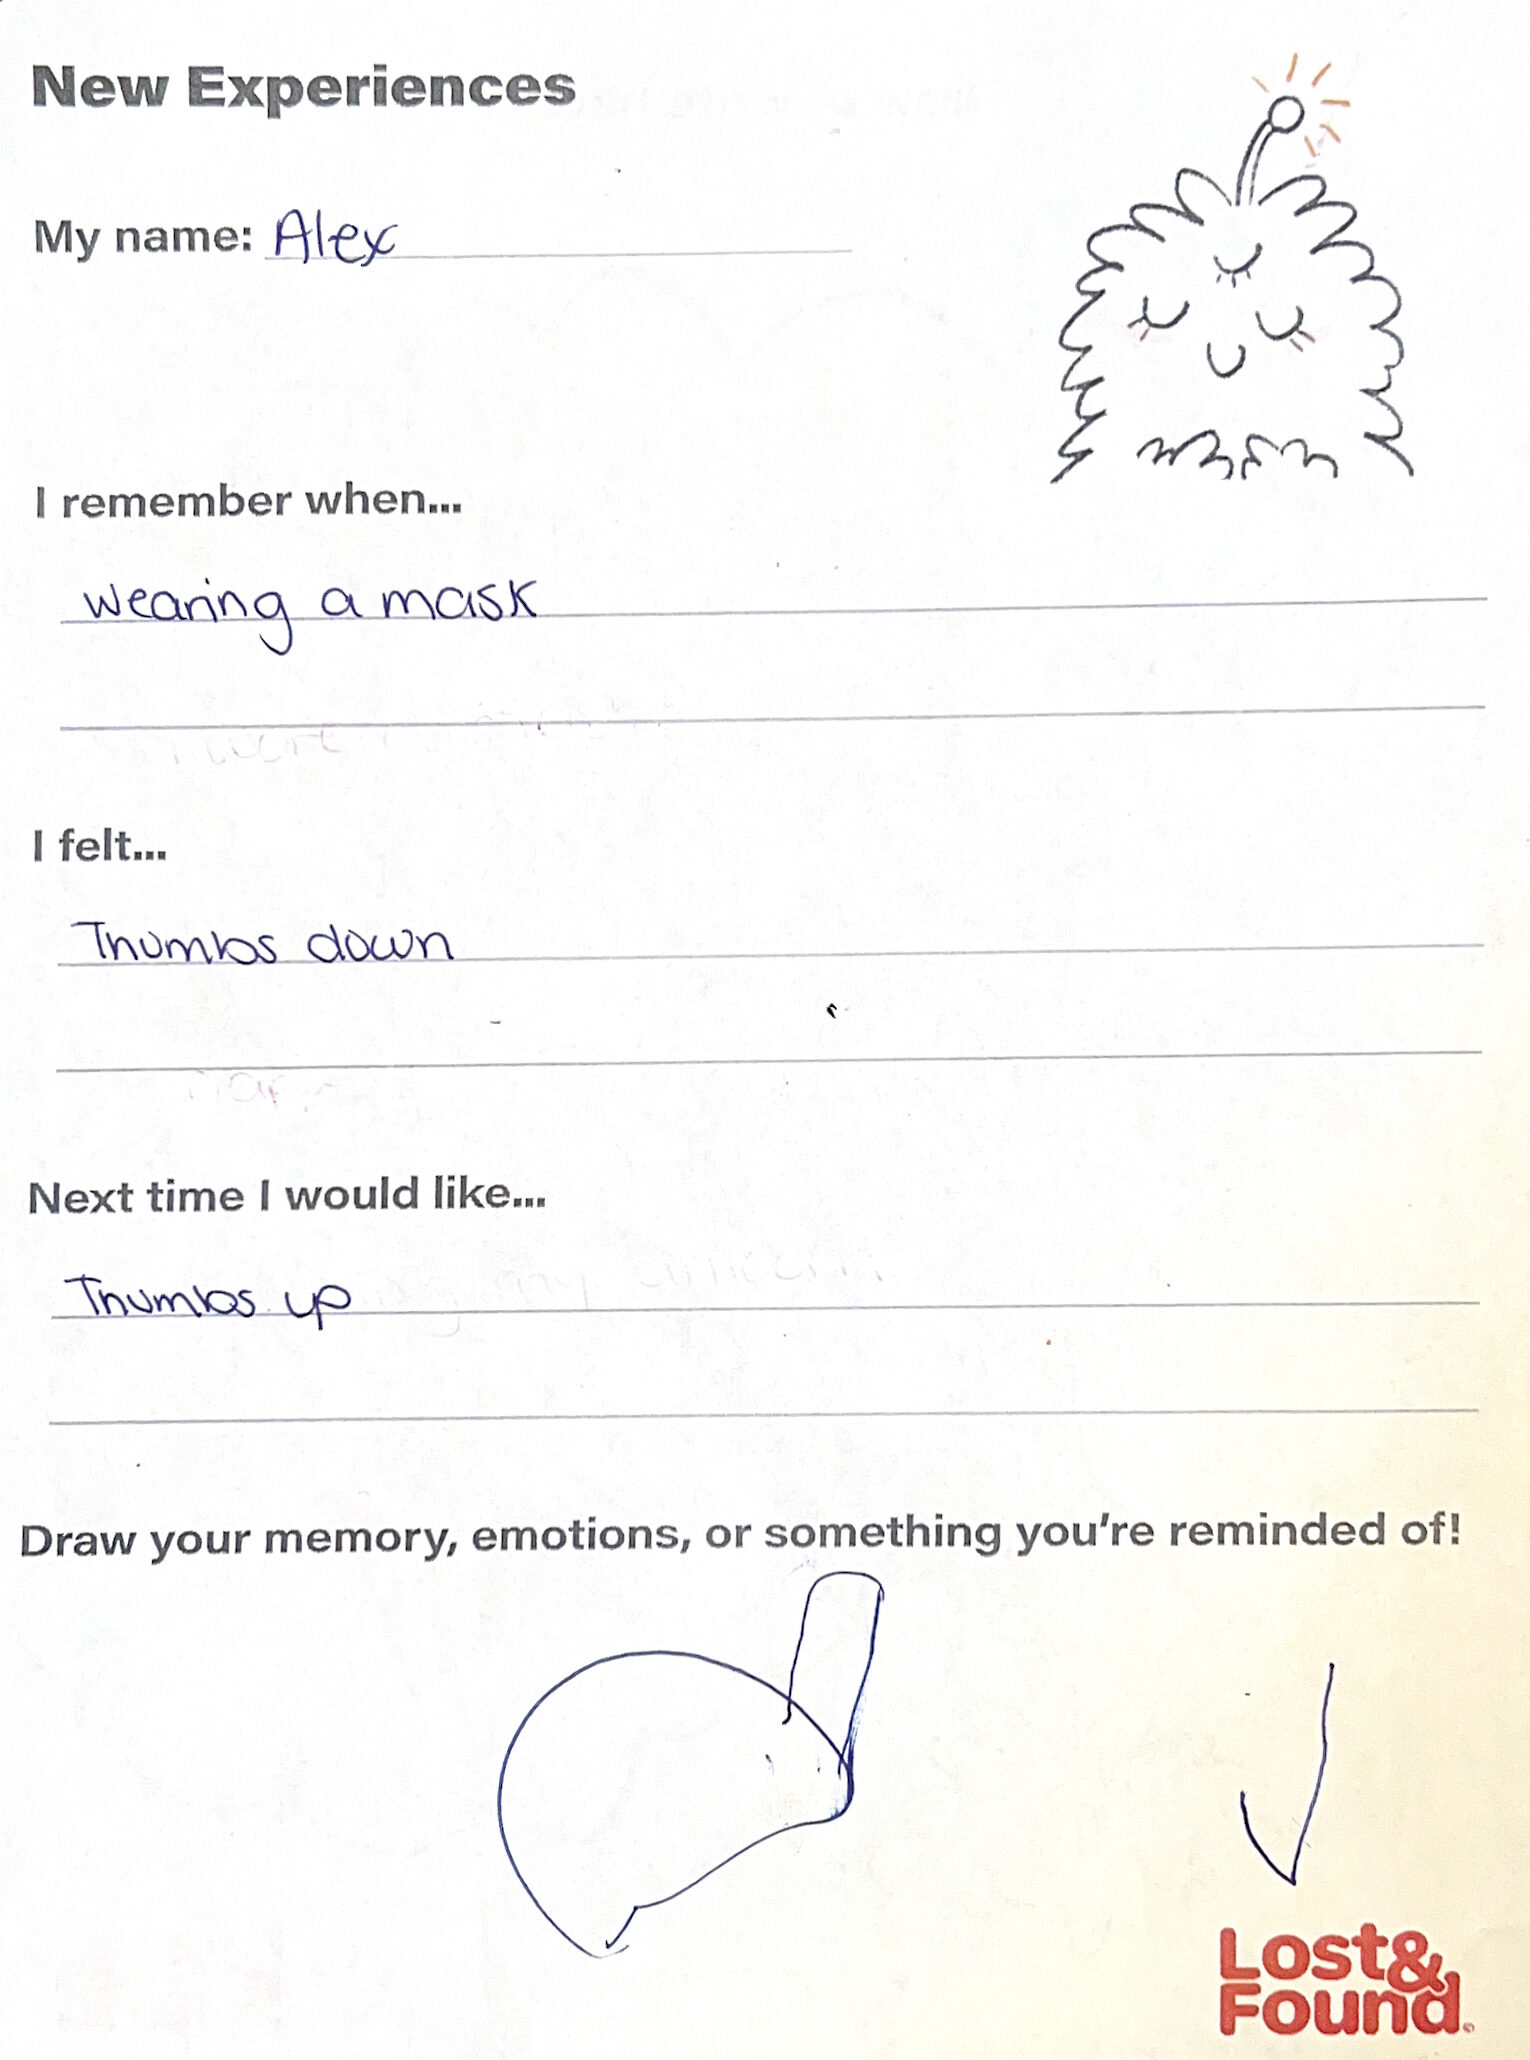 New Experiences
My name: Alex
I remember when...
wearing a mask
I felt...
Thumbs down
Next time I would like...
Thumbs up
Draw your memory, emotions, or something you're reminded of!
Lost&
Found